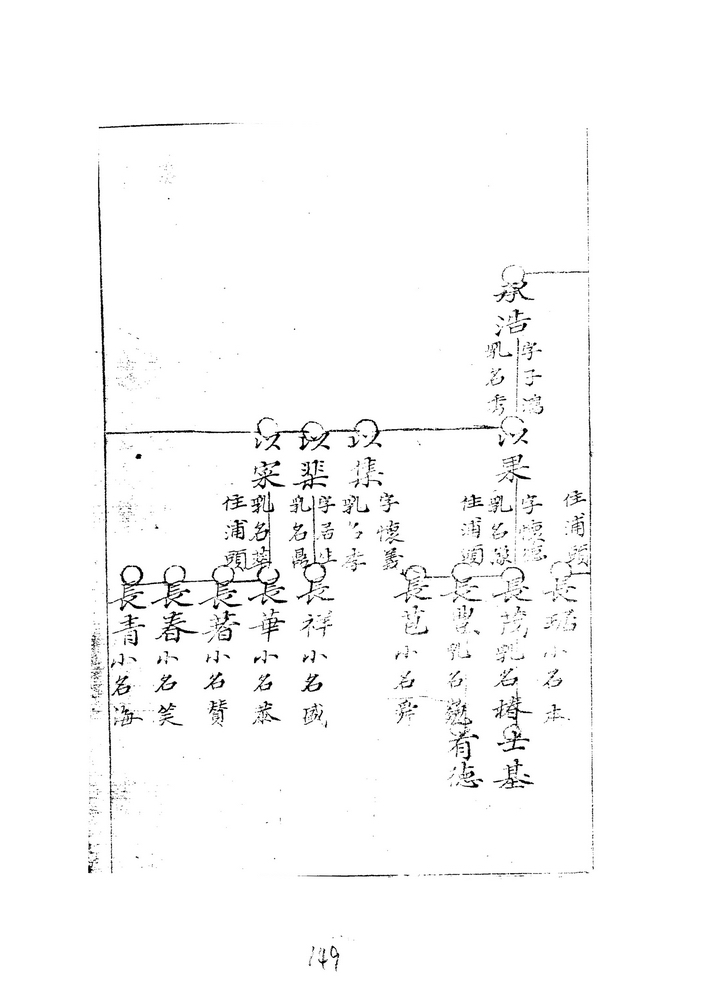 承浩
字子鴻
乳名秀
以果
字懷德
乳名
住浦頭
以集
字懷義
乳名孝
以棐
字居
乳名昺
以寀
乳名
住浦頭
住浦頭
長琚小名本
長茂乳名椿
士基
長豊乳名
有德
長苞小名舜
長祥小名盛
長華小名恭
長著小名贊
長春小名笑
長青小名海
149